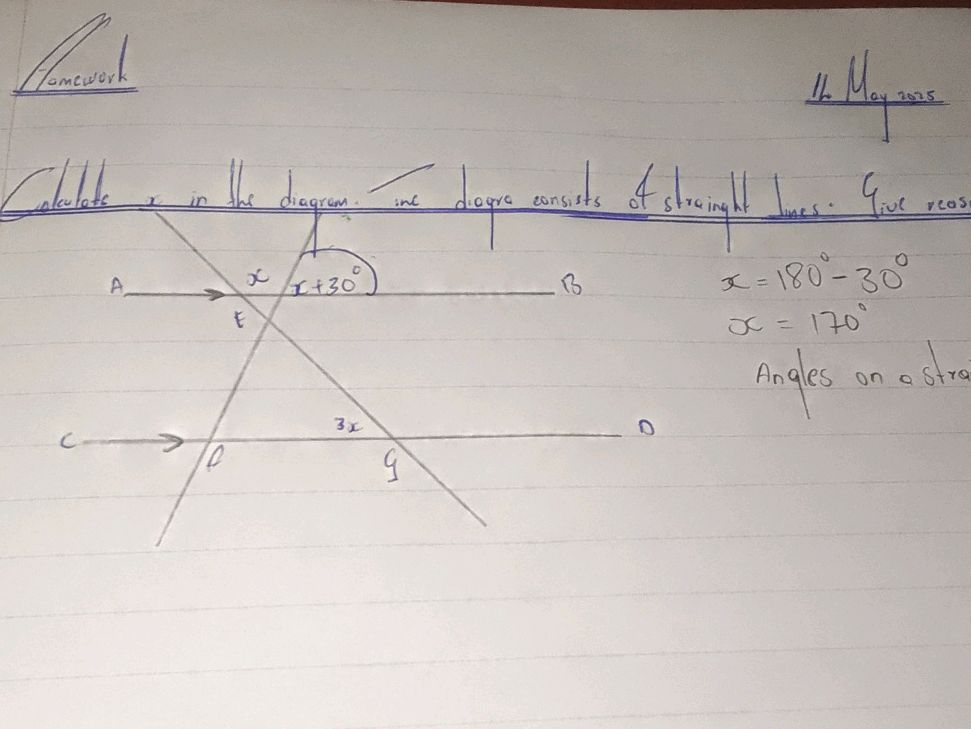 Homework
16 May 2025
Calculate x in the diagram. The diagra consists of strainght lines. Give reas
x
x+30°
A
B
E
x = 180° - 30°
x = 170°
Angles on a stra
3x
C
D
G